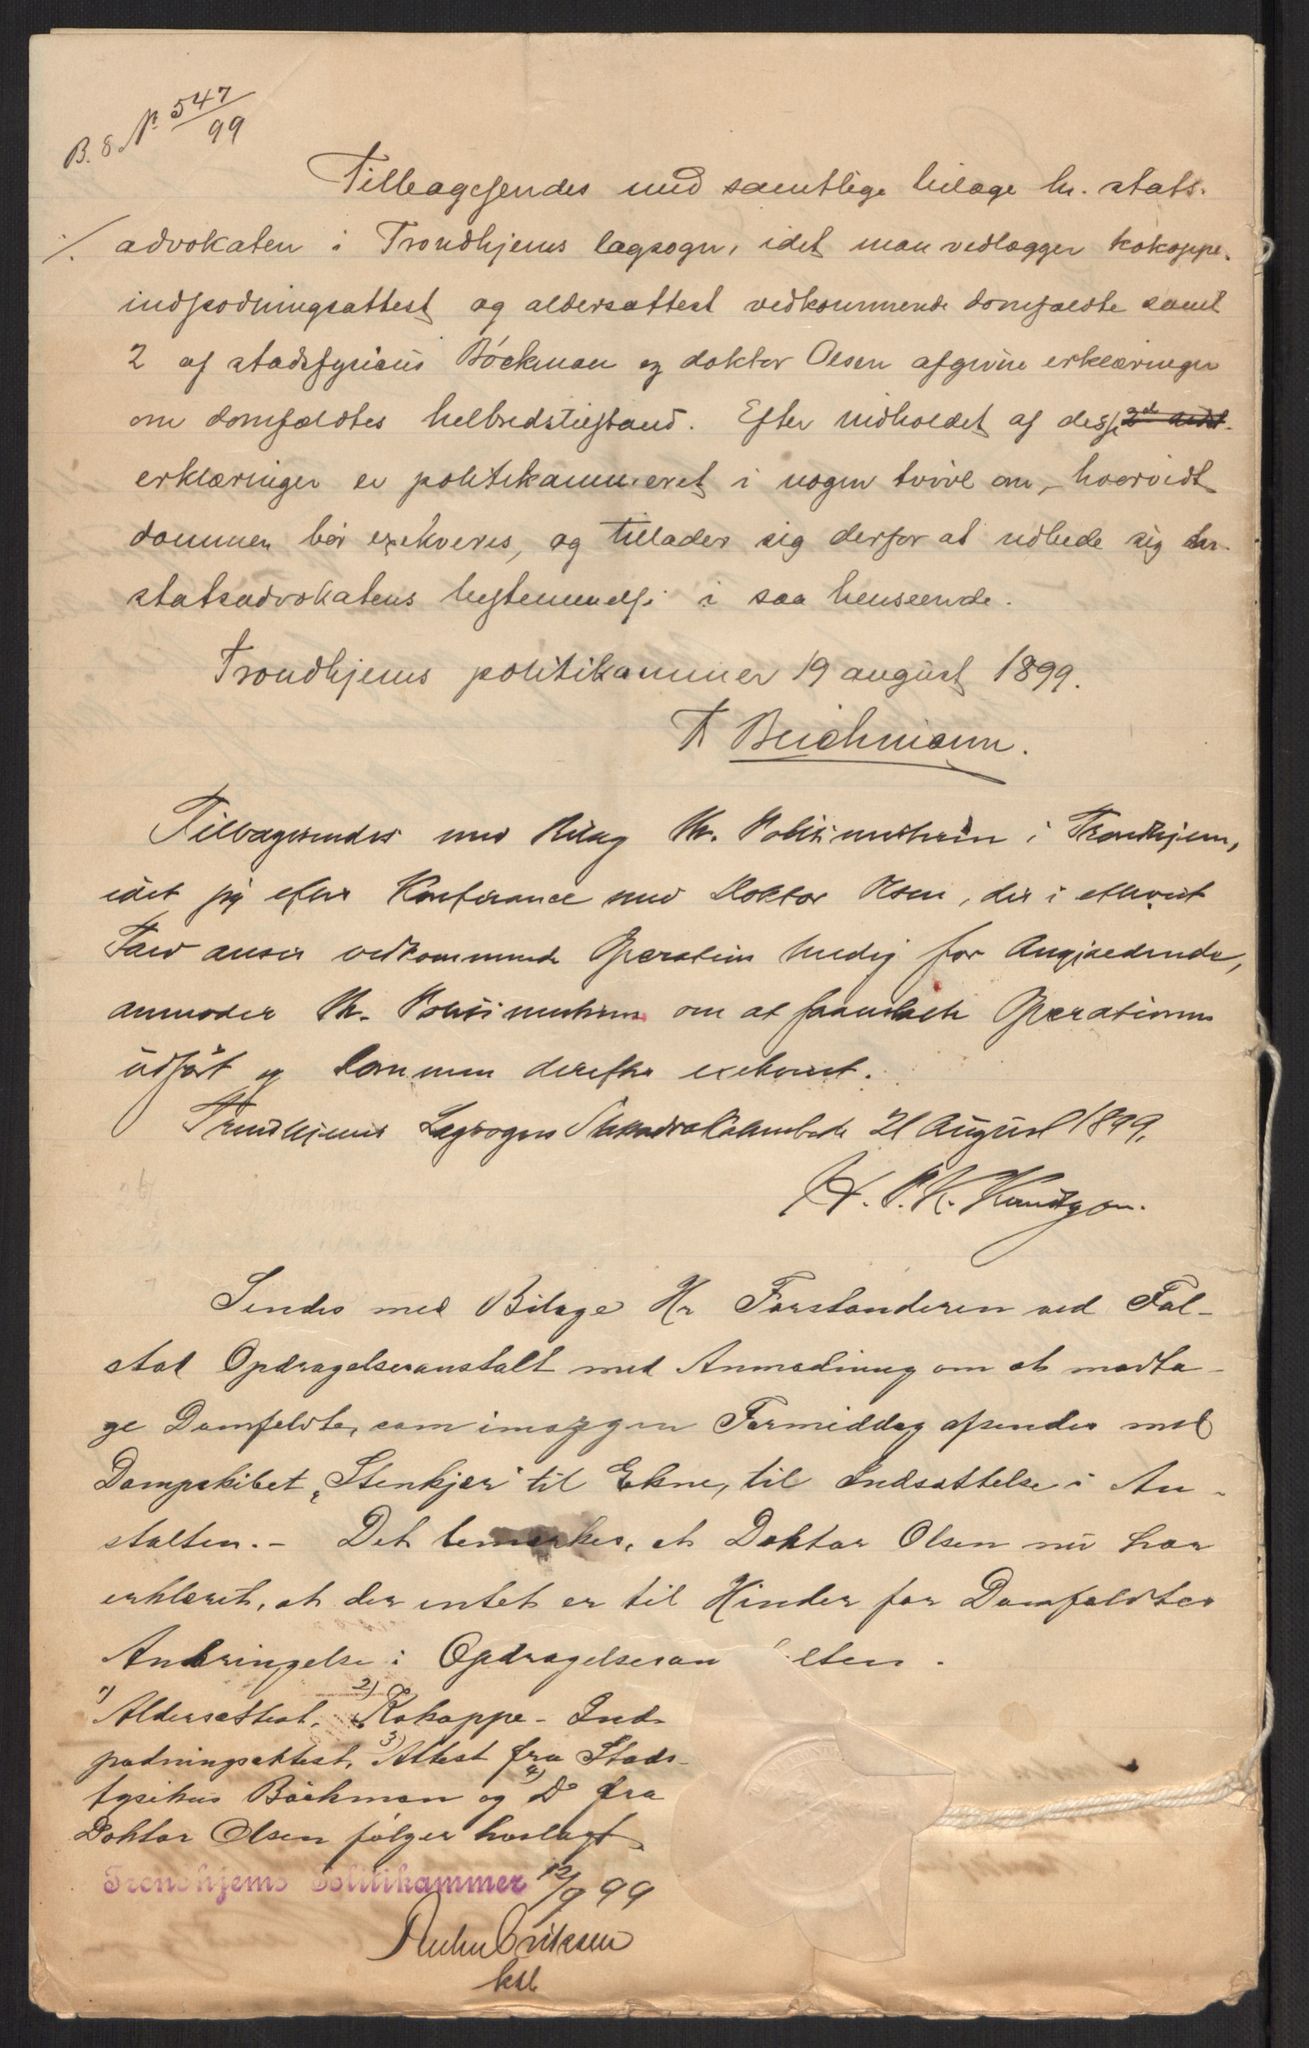 B. 8. No 547/99
Tilbagesendes med samtlige bilage hr. stats-
advokaten i Trondhjems lagsogn, idet man vedlægger kokoppe-
indpodningsattest og aldersattest vedkommende domfældte samt
2 af stadsfysicus Böckman og doktor Olsen afgivne erklæringer
om domfældtes helbredstilstand. Efter indholdet af disse
erklæringer er politikammeret i nogen tvivl om, hvorvidt
dommen bør exekveres, og tillader sig derfor at udbede sig hr.
statsadvokatens bestemmelse i saa henseende.
Trondhjems politikammer 19 august 1899.
Th Beichmann.
Tilbagesendes med Bilag Hr. Politimesteren i Trondhjem,
idet jeg efter Konferance med Doktor Olsen, der i ethvert
Fald anser vedkommende Operation heldig for Angjældende,
anmoder Hr. Politimesteren om at faa Operationen
udført og Dommen derefter exekveret.
Trondhjems Lagsogns Statsadvokatembede 21 August 1899.
Sendes med Bilage Hr Forstanderen ved Fal-
stad Opdragelseranstalt med Anmodning om at modta-
ge Domfeldte, som imorgen Formiddag afsendes med
Dampskibet "Stenkjær" til Ekne, til Indsættelse i An-
stalten. - Det bemærkes, at Doktor Olsen nu har
erklæret, at der intet er til Hinder for Domfeldtes
Anbringelse i Opdragelseranstalten.
1) Aldersattest, 2) Kokoppe-Ind-
podningsattest, 3) Attest fra Stads-
fysikus Böckman og 4) Do fra
Doktor Olsen følger hoslagt.
Trondhjems Politikammer 12/9 99
Eriksen